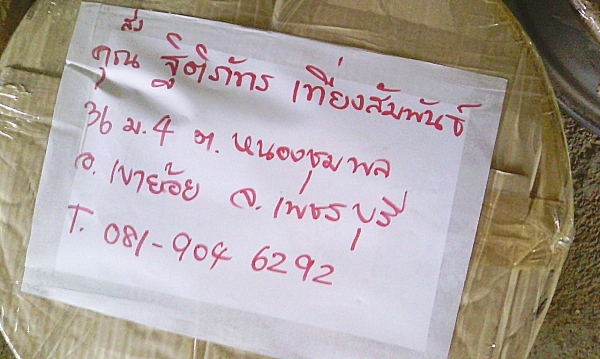 ส่ง
คุณ ฐิติภัทร เที่ยงสัมพันธ์
36 ม.4 ต. หนองชุมพล
อ. เขาย้อย จ. เพชรบุรี
T. 081-904 6292